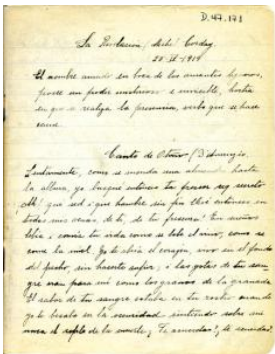 D.47.173
La Tentación (debió Corday
20-IX-1919
El nombre amado en boca de los amantes
posee un poder misterioso e invencible, hostia
en que se realiza la promesa, verbo que se hace
carne.
Canto de Otoño (D'Annunzio.
Lentamente, como se monda una almendra hasta
la albura, yo busqué entonces tu secreto
Ah! que sed y que hambre sin fin Clavé entonces en
todas mis ansias de ti, de tu frescura! Tus sueños
bebía i comía tu vida como se bebe el vino, como se
come la miel. Yo te abría el corazón, vivo en el fondo
del pecho, sin hacerte sufrir, i las gotas de tu san-
gre eran para mi como los granos de la granada.
El sabor de tu sangre estaba en tu rostro cuando
yo lo besaba en la oscuridad sintiendo sobre mi
nuca el soplo de la muerte ¿Te acuerdas? ¿te acuerdas?